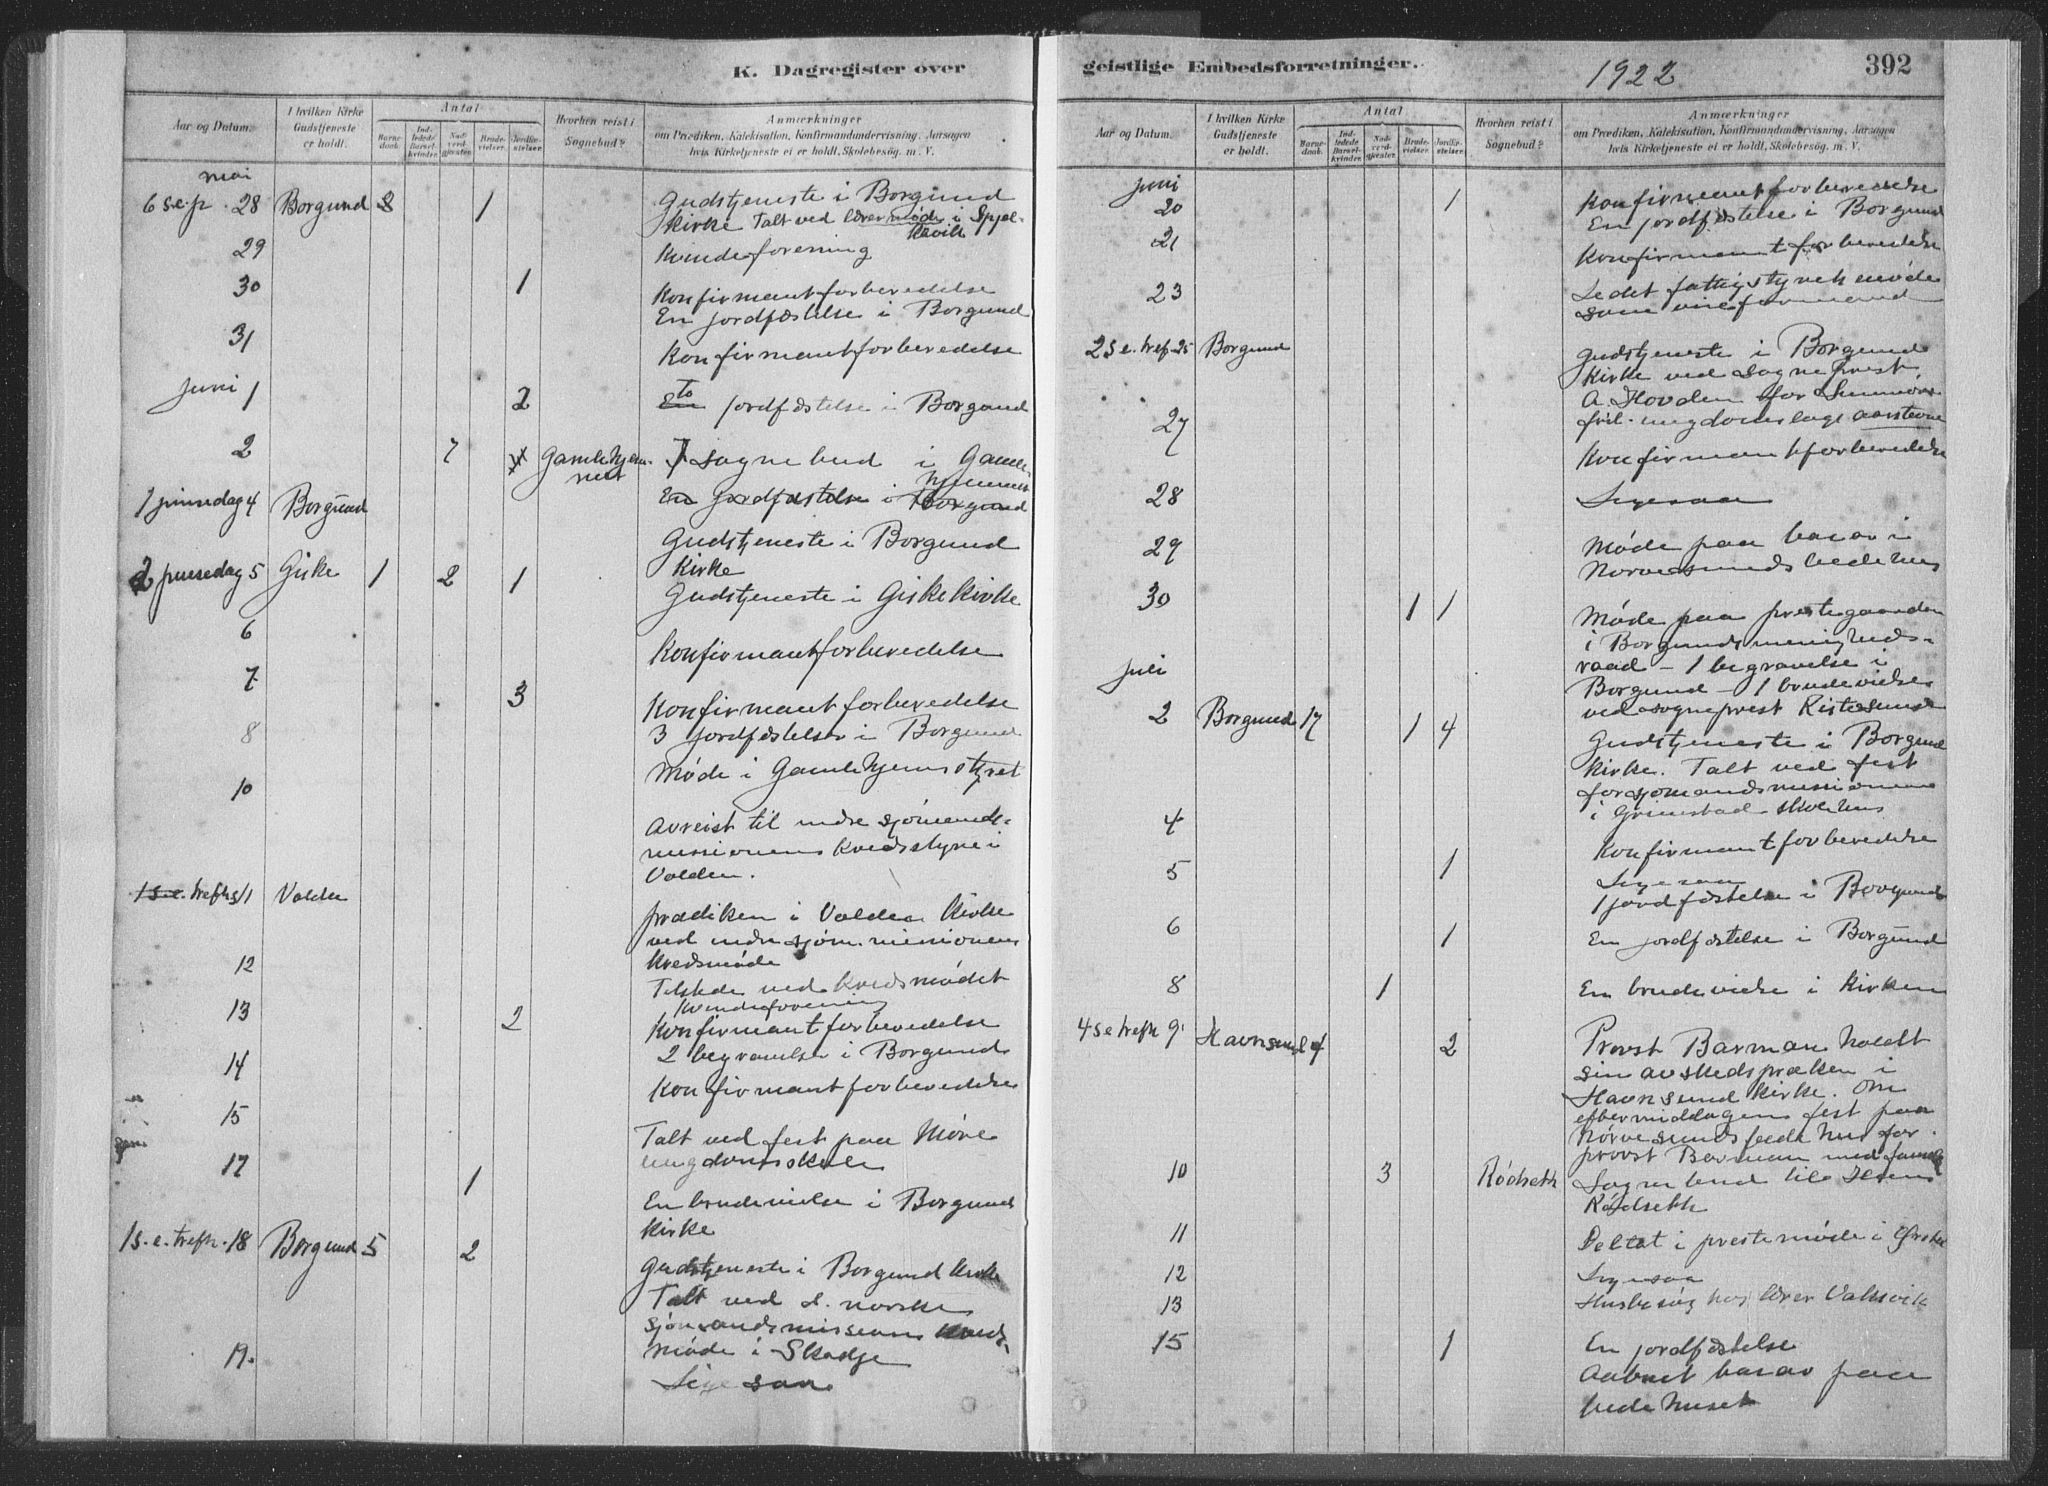 K. Dagregister over
Aar og Datum.
I hvilken Kirke Gudstjeneste er holdt.
Antal
Barnedaab.
Indledede Barselkvinder
Nadverdgjester
Brudevielser
Jordfæstelser
Hvorhen reist i Sognebud?
Anmærkninger
om Prædiken, Katekisation, Konfirmandundervisning, Aarsagen
hvis Kirketjeneste ei er holdt, Skolebesög. m. V.
mai
6 s e. p. 28 Borgund 8 1 Gudstjeneste i Borgund
Kirke Talt ved lærermøde i Spjel-
kavik
29 Kvindeforening
30 1 Konfirmantforberedelse
En jordfæstelse i Borgund
31 Konfirmantforberedelse
Juni 1 2 En to jordfæstelse i Borgund
2 7 Gamlehjem-
met
7 sognebud i Gamle-
hjemmet
En jordfæstelse i Borgund
1 pinsedag 4 Borgund Gudstjeneste i Borgund
Kirke
2 pinsedag 5 Giske 1 2 1 Gudstjeneste i Giske Kirke
6 Konfirmantforberedelse
7 3 Konfirmantforberedelse
3 jordfæstelser i Borgund
8 Møde i Gamlehjemsstyret
10 Avreist til indre sjømands-
missionens Kredsstyre i
Volden.
1 s. e. trefh 11 Volden prædiken i Volden Kirke
ved indre sjøm. missionens
Kredsmøde
12 Tilstede ved Kredsmødet
Kvindeforening
13 2 Konfirmantforberedelse
2 begravelser i Borgund
14 Konfirmantforberedelse
15 Talt ved fest paa Møre
ungdomsskule
17 1 En brudevielse i Borgund
Kirke
1 s. e. trefh. 18 Borgund 5 2 Gudstjeneste i Borgund Kirke
Talt ved d. norske
sjømandsmissions Kreds-
møde i Skodje
19. Ligesaa
geistlige Embedsforretninger.
1922
392
Aar og Datum.
I hvilken Kirke Gudstjeneste er holdt.
Antal
Barnedaab.
Indledede Barselkvinder
Nadverdgjester
Brudevielser
Jordfæstelser
Hvorhen reist i Sognebud?
Anmærkninger
om Prædiken, Katekisation, Konfirmandundervisning, Aarsagen
hvis Kirketjeneste ei er holdt, Skolebesög. m. V.
Juni
20 1 Konfirmantforberedelse
En jordfæstelse i Borgund
21 Konfirmantforberedelse
23 Ledet fattigstyrets møde
som viseformand
2 s e. tref. 25 Borgund Gudstjeneste i Borgund
Kirke ved sogneprest
A. Hovden for Sunnmøre
fril. ungdomslags aarstevne
27 Konfirmantforberedelse
28 Ligesaa
29 Møde paa basar i
Nørvesunds bedehus
30 1 1 Møde paa prestegaarden
i Borgunds menigheds-
raad - 1 begravelse i
Borgund - 1 brudevielse
ved sogneprest Ristesund
Juli
2 Borgund 17 1 4 Gudstjeneste i Borgund
Kirke. Talt ved fest
for sjømandsmissionen
i Grimstad skolehus
4 Konfirmantforberedelse
5 1 Ligesaa
1 jordfæstelse i Borgund
6 1 En jordfæstelse i Borgund
8 1 En brudevielse i Kirken
4 s e trefh 9. Havnsund 4 2 Provst Barman holdt
sin avskedspræken i
Havnsund Kirke. Om
eftermiddagen fest paa
Nørvesunds bedehus for
provst Barman med familie
10 3 Rødseth Sognebud til
Rødseth
11 Deltat i prestemøde i Ørsta
12 Ligesaa
13 Husbesøg hos lærer Valsvik
15 1 En jordfæstelse
Aabnet basar paa
bedehuset